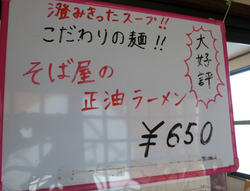 澄みきったスープ!!
こだわりの麺!!
大好評
そば屋の
正油ラーメン
¥650